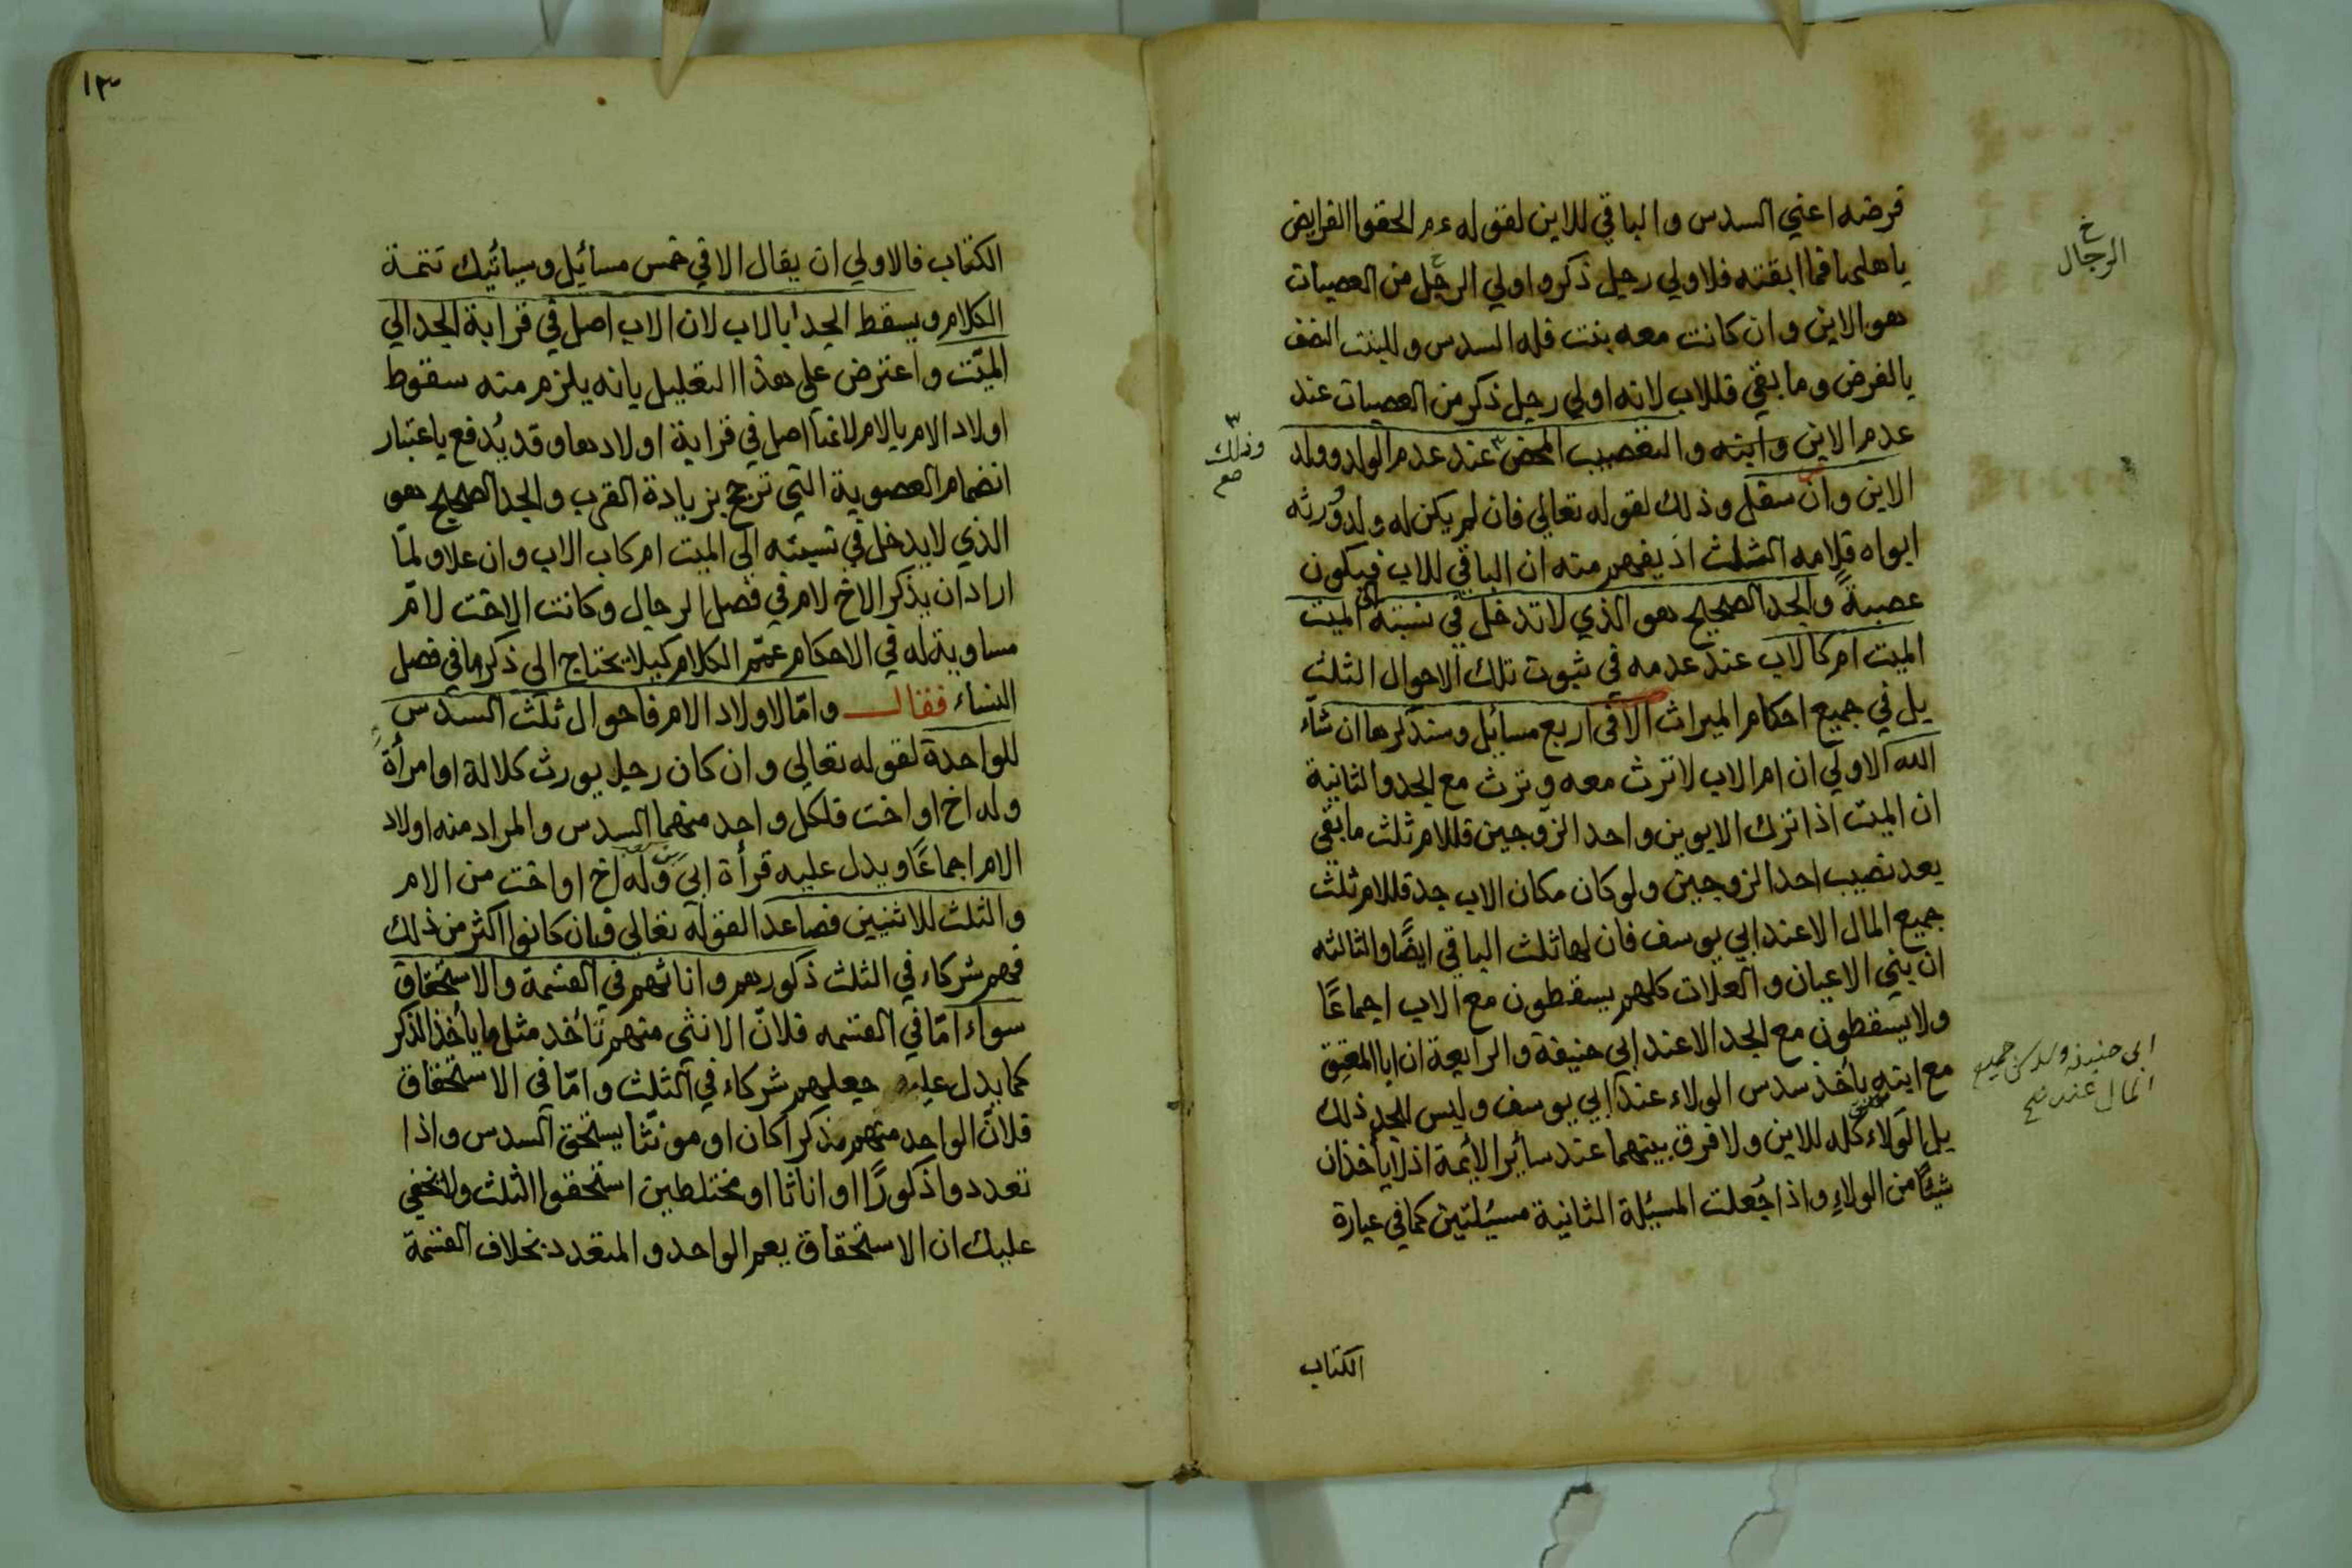 فرضه اعني السدس والباقي للابن لقوله عم الحقوا الفرايض
باهلها فما ابقته فلاولي رجل ذكر واولي الرجل من العصبات
هو الابن وان كانت معه بنت فله السدس وللبنت النصف
بالفرض وما بقي فللاب لانه اولي رجل ذكر من العصبات عند
عدم الابن وابنه والتعصيب المحض عند عدم الولد وولد
الابن وان سفل وذلك لقوله تعالي فان لم يكن له ولد وورثه
ابواه فلامه الثلث اذ يفهم منه ان الباقي للاب فيكون
عصبةً والجد الصحيح هو الذي لا تدخل في نسبته الي الميت
الميت ام كالاب عند عدمه في ثبوت تلك الاحوال الثلث
بل في جميع احكام الميراث الا في اربع مسائل وسنذكرها ان شاء
الله الاولي ان ام الاب لا ترث معه وترث مع الجد والثانية
ان الميت اذا ترك الابوين واحد الزوجين فللام ثلث ما بقي
بعد نصيب احد الزوجين ولو كان مكان الاب جد فللام ثلث
جميع المال الا عند ابي يوسف فان لها ثلث الباقي ايضًا والثالثه
ان بني الاعيان والعلات كلهم يسقطون مع الاب اجماعًا
ولا يسقطون مع الجد الا عند ابي حنيفة والرابعة ان ابا المعتِق
مع ابنه يأخذ سدس الولاء عند ابي يوسف وليس للجد ذلك
بل الولاء كله للابن ولا فرق بينهما عند سائر الأئمة اذ لا يأخذان
شيئًا من الولاءِ واذا جُعلت المسئلة الثانية مسئلتين كما في عبارة
الكتاب
خ
الرجال
وذلك
صح
ابي حنيفة جميع
المال عنده صح
١٣
الكتاب فالاولي ان يقال الا في خمس مسائل وسيأتيك تتمة
الكلام ويسقط الجد بالاب لان الاب اصل في قرابة الجد الي
الميّت واعترض علي هذا التعليل بانه يلزم منه سقوط
اولاد الام بالام لانها اصل في قرابة اولادها وقد يُدفع باعتبار
انضمام العصوبة التي ترجح بزيادة القرب والجد الصحيح هو
الذي لا يدخل في نسبته الي الميت ام كاب الاب وان علا ولمّا
اراد ان يذكر الاخ لام في فصل الرجال وكانت الاخت لامّ
مساوية له في الاحكام عمّم الكلام كيلا يحتاج الي ذكرها في فصل
النساء فقال وامّا لاولاد الام فاحوال ثلث السدس
للواحدة لقوله تعالي وان كان رجل يورث كلالة او امرأة
وله اخ او اخت فلكل واحد منهما السدس والمراد منه اولاد
الام اجماعًا ويدل عليه قرأة ابي وله اخ او اخت من الام
والثلث للاثنيين فصاعدا لقوله تعالي فان كانوا اكثر من ذلك
فهم شركاء في الثلث ذكورهم واناثهم في القسمة والاستحقاق
سواء امّا في القسمه فلانّ الانثي منهم تأخذ مثل ما يأخذ الذكر
كما يدل عليه جعلهم شركاء في الثلث وامّا في الاستحقاق
فلانّ الواحد منهم مذكرا كان او مونّثا يستحق السدس واذا
تعددوا ذكورًا او اناثا او مختلطين استحقوا الثلث ولا يخفي
عليك ان الاستحقاق يعم الواحد والمتعدد بخلاف القسمة